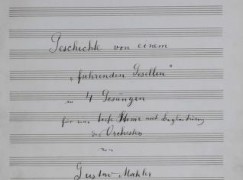 Geschichte von einem
„fahrenden Gesellen"
in 4 Gesängen
für eine tiefe Stimme mit Begleitung
des Orchesters
von
Gustav Mahler